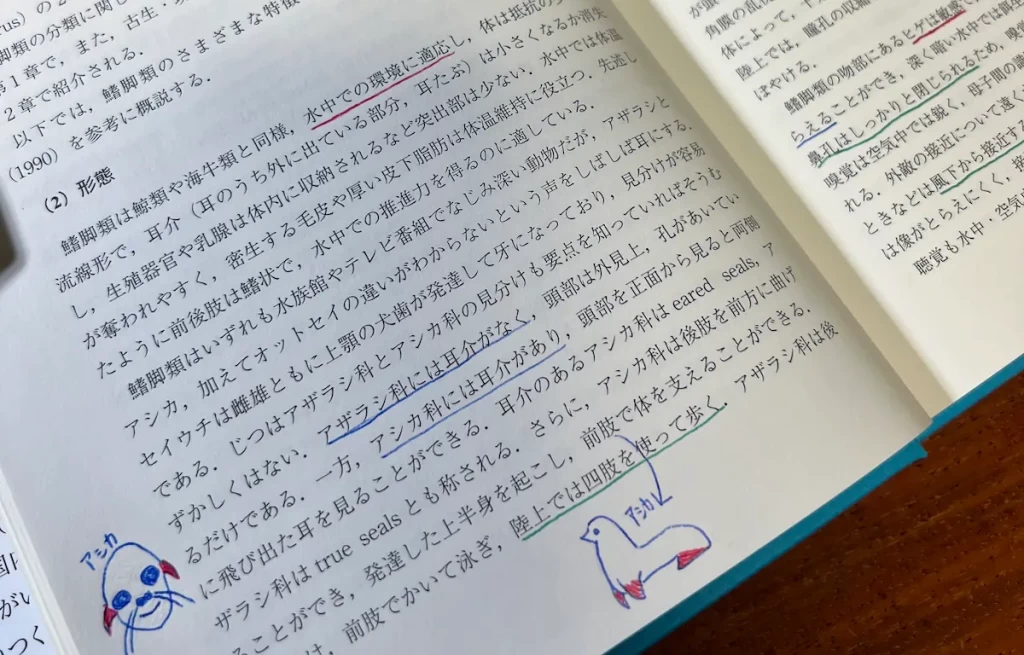 rus) の2
脚類の分類に関し
第1章で，また，古生・
2章で紹介される．
以下では，鰭脚類のさまざまな特徴
(1990) を参考に概説する．
(2) 形態
鰭脚類は鯨類や海牛類と同様，水中での環境に適応し，体は抵抗の
流線形で，耳介（耳のうち外に出ている部分，耳たぶ）は小さくなるか消失
し，生殖器官や乳腺は体内に収納されるなど突出部は少ない．水中では体温
が奪われやすく，密生する毛皮や厚い皮下脂肪は体温維持に役立つ．先述し
たように前後肢は鰭状で，水中での推進力を得るのに適している．
鰭脚類はいずれも水族館やテレビ番組でなじみ深い動物だが，アザラシと
アシカ，加えてオットセイの違いがわからないという声をしばしば耳にする．
セイウチは雌雄ともに上顎の犬歯が発達して牙になっており，見分けが容易
である．じつはアザラシ科とアシカ科の見分けも要点を知っていればそうむ
ずかしくはない．アザラシ科には耳介がなく，頭部は外見上，孔があいてい
るだけである．一方，アシカ科には耳介があり，頭部を正面から見ると両側
に飛び出た耳を見ることができる．耳介のあるアシカ科は eared seals, ア
ザラシ科は true seals とも称される．さらに，アシカ科は後肢を前方に曲げ
ることができ，発達した上半身を起こし，前肢で体を支えることができる．
は，前肢でかいて泳ぎ，陸上では四肢を使って歩く．アザラシ科は後
アシカ
アシカ
角膜の乱
体によって，
陸上では，瞳孔の収縮
ぼやける．
鰭脚類の吻部にあるヒゲは敏感
らえることができ，深く暗い水中では
鼻孔はしっかりと閉じられるため，嗅
嗅覚は空気中では鋭く，母子間の
れる．外敵の接近について遠く
ときなどは風下から接近す
は像がとらえにくく，接
聴覚も水中・空気